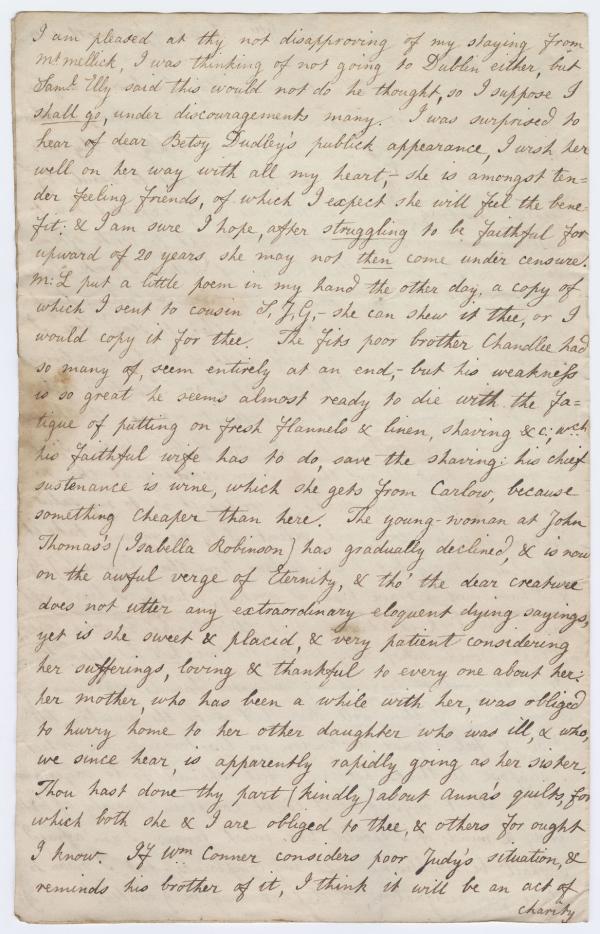 I am pleased at thy not disapproving of my staying from
Mt mellick, I was thinking of not going to Dublin either, but
Saml. Elly said this would not do he thought, so I suppose I
shall go, under discouragements many. I was surprised to
hear of dear Betsy Dudley's publick appearance, I wish her
well on her way with all my heart,- she is amongst ten=
der feeling friends, of which I expect she will feel the bene
fit: & I am sure I hope, after struggling to be faithful for
upward of 20 years, she may not then come under censure.
M: L put a little poem in my hand the other day, a copy of
which I sent to cousin S, J, G,- she can shew it thee, or I
would copy it for thee. The fits poor brother Chandlee had
so many of, seem entirely at an end,- but his weakness
is so great he seems almost ready to die with the fa=
tigue of putting on fresh flannels & linen, shaving &c; wch
his faithful wife has to do, save the shaving: his chief
sustenance is wine, which she gets from Carlow, because
something cheaper than here. The young-woman at John
Thomas's (Isabella Robinson) has gradually declined, & is now
on the awful verge of Eternity, & tho' the dear creature
does not utter any extraordinary eloquent dying sayings,
yet is she sweet & placid, & very patient considering
her sufferings, loving & thankful to every one about her:
her mother, who has been a while with her, was obliged
to hurry home to her other daughter who was ill, & who,
we since hear, is apparently rapidly going as her sister.
Thou hast done thy part (kindly) about Anna's quilts, for
which both she & I are obliged to thee, & others for ought
I know. If Wm Conner considers poor Judy's situation, &
reminds his brother of it, I think it will be an act of
charity